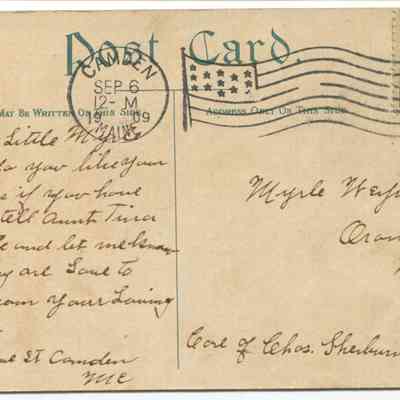 Post Card.
CAMDEN
SEP 6
12-M
19 09
MAINE
MAY BE WRITTEN ON THIS SIDE
ADDRESS ONLY ON THIS SIDE
Little
do you like your
if you have
tell Aunt Tina
and let me know
are Love to
from your Loving
St Camden
Me
Myrle
Oron
Care of Chas. Sherburn